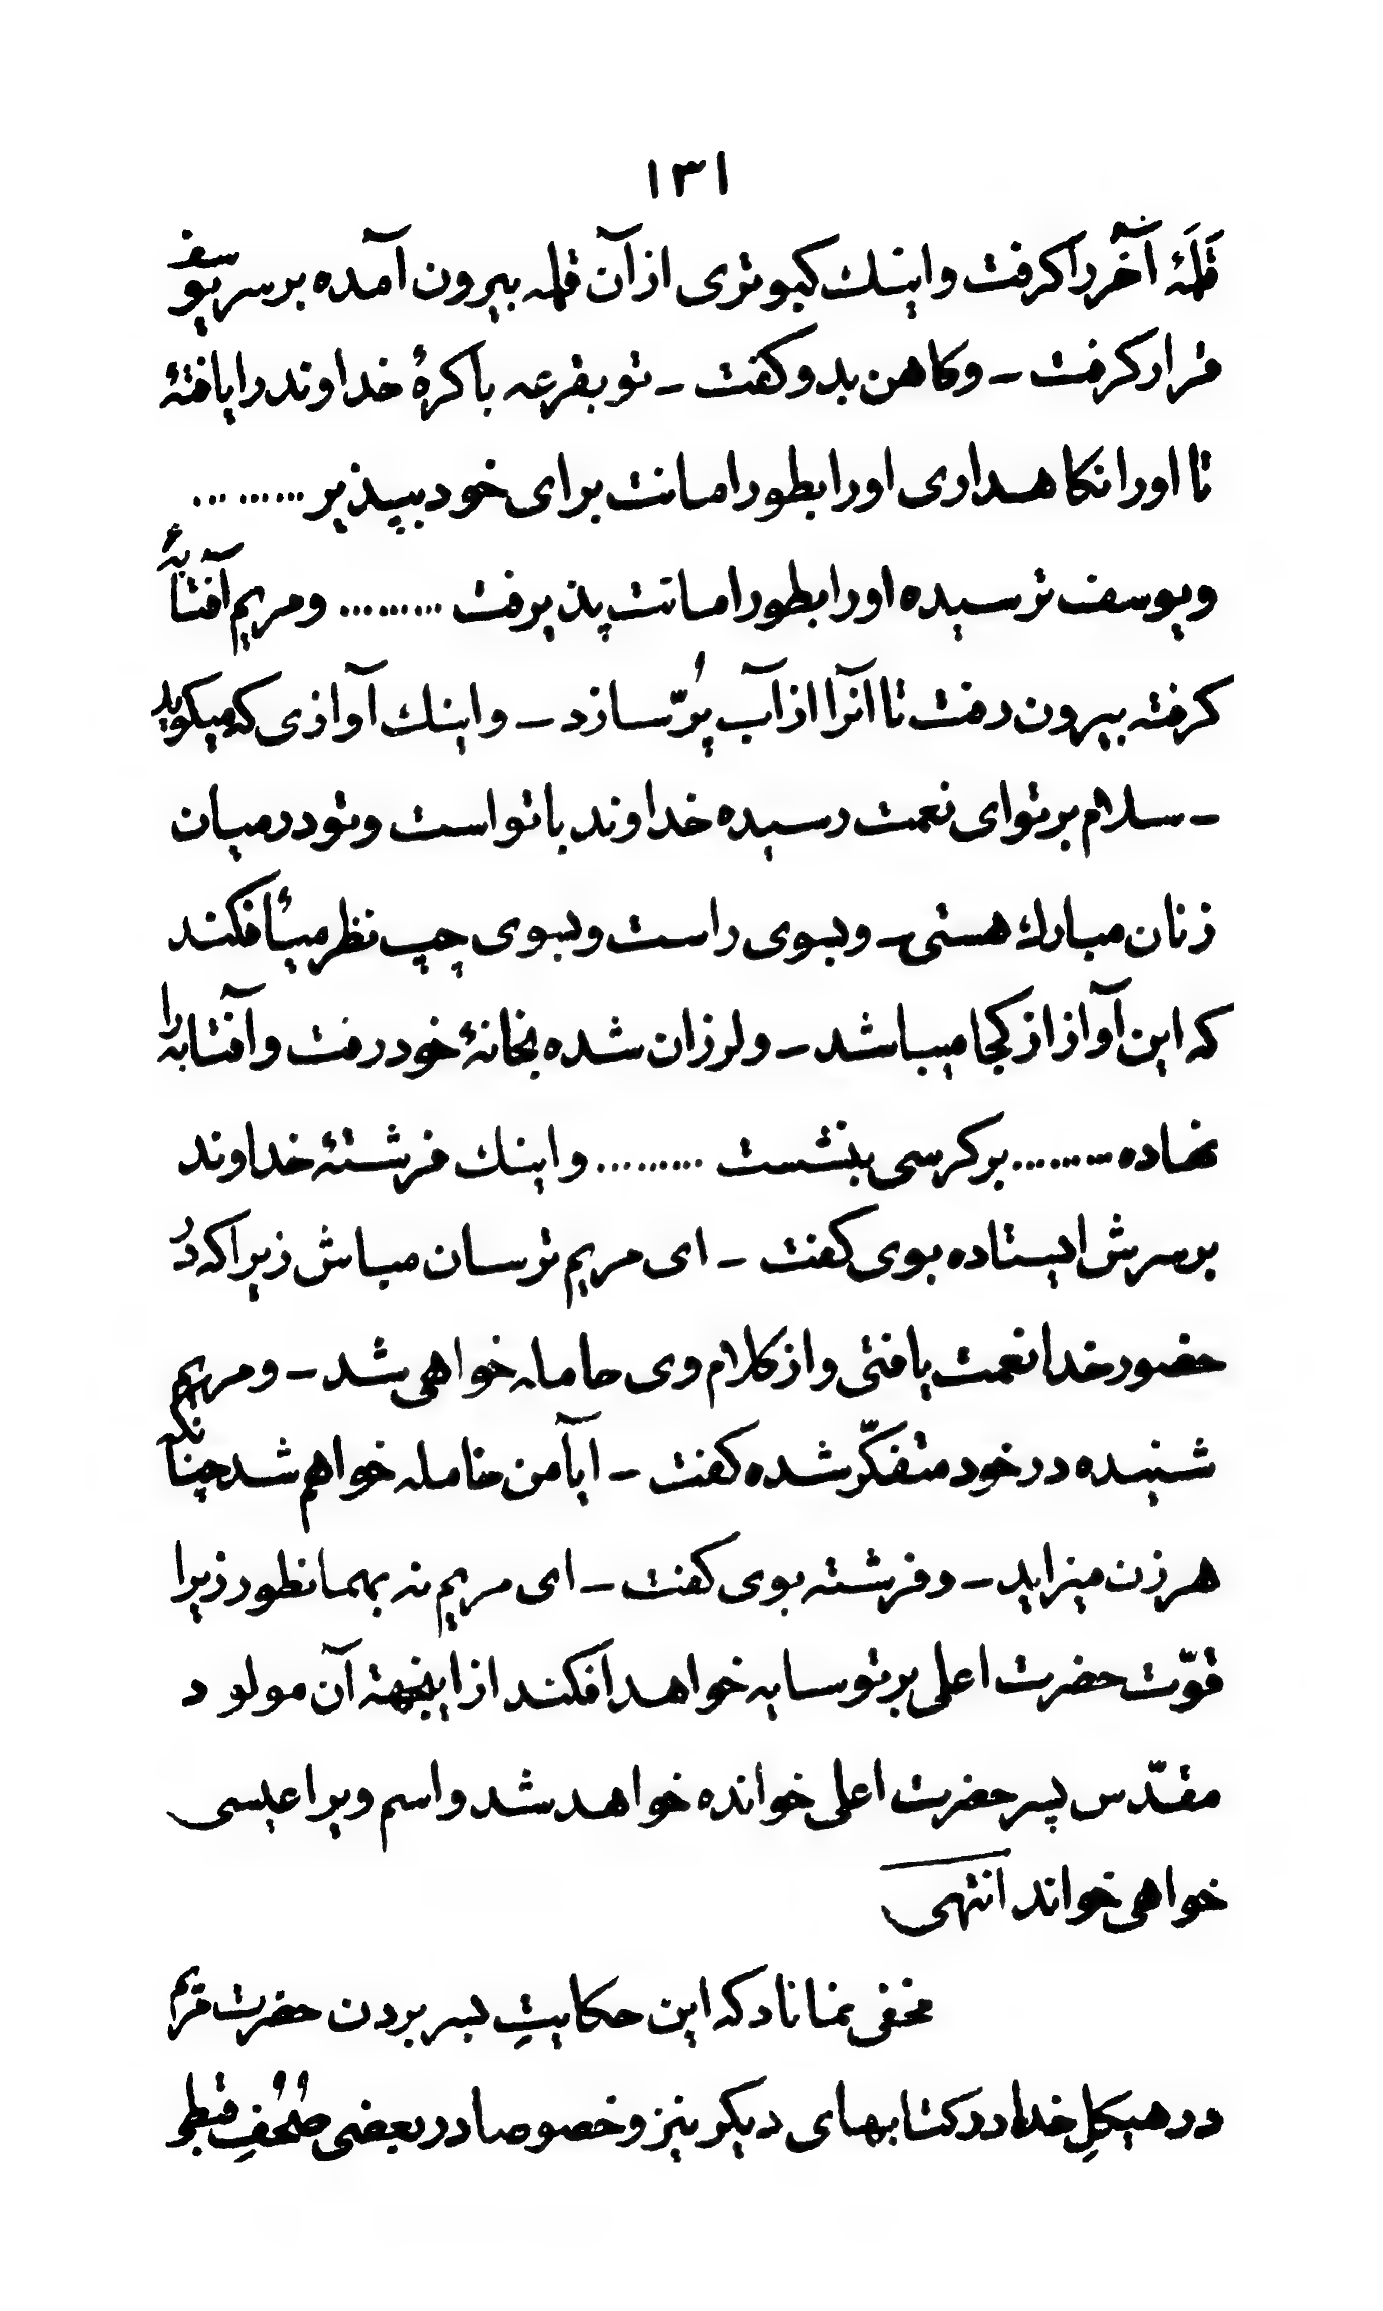 ١٣١
قلمهٔ آخر را کرفت و اینك کبوتری از آن قلمه بیرون آمده بر سر یوسف
قرار کرفت ــ و کاهن بدو کفت ــ تو بقرعه باکرهٔ خداوند را یافتهٔ
تا او را نکاهداری او را بطور امانت برای خود بپذیر .........
و یوسف ترسیده او را بطور امانت پذیرفت ......... و مریم آفتابهٔ
کرفته بیرون رفت تا آنرا از آب پُرّ سازد ــ و اینك آوازی که میکوید
ــ سلام بر تو ای نعمت رسیده خداوند با تو است و تو در میان
زنان مبارك هستی ــ و بسوی راست و بسوی چپ نظر میٲفکند
که این آواز از کجا میباشد ــ و لرزان شده بخانهٔ خود رفت و آفتابه را
نهاده ......... بر کرسی بنشست ......... و اینك فرشتهٔ خداوند
بر سرش ایستاده بوی کفت ــ ای مریم ترسان مباش زیرا که دُر
حضور خدا نعمت یافتی و از کلام وی حامله خواهی شد ــ و مریم
شنیده در خود متفکّر شده کفت ــ ایآ من حامله خواهم شد چنانکه
هر زن میزاید ــ و فرشته بوی کفت ــ ای مریم نه بهمانطور زیرا
قوّت حضرت اعلی بر تو سایه خواهد افکند از اینجهة آن مولود
مقدّس پسر حضرت اعلی خوانده خواهد شد و اسم ویرا عیسی
خواهی خواند انتهی
مخفی نماناد که این حکایتِ بسر بردن حضرت مریم
در هیکلِ خدا در کتابهای دیکر نیز و خصوصا در بعضی صُحُفِ قبطی